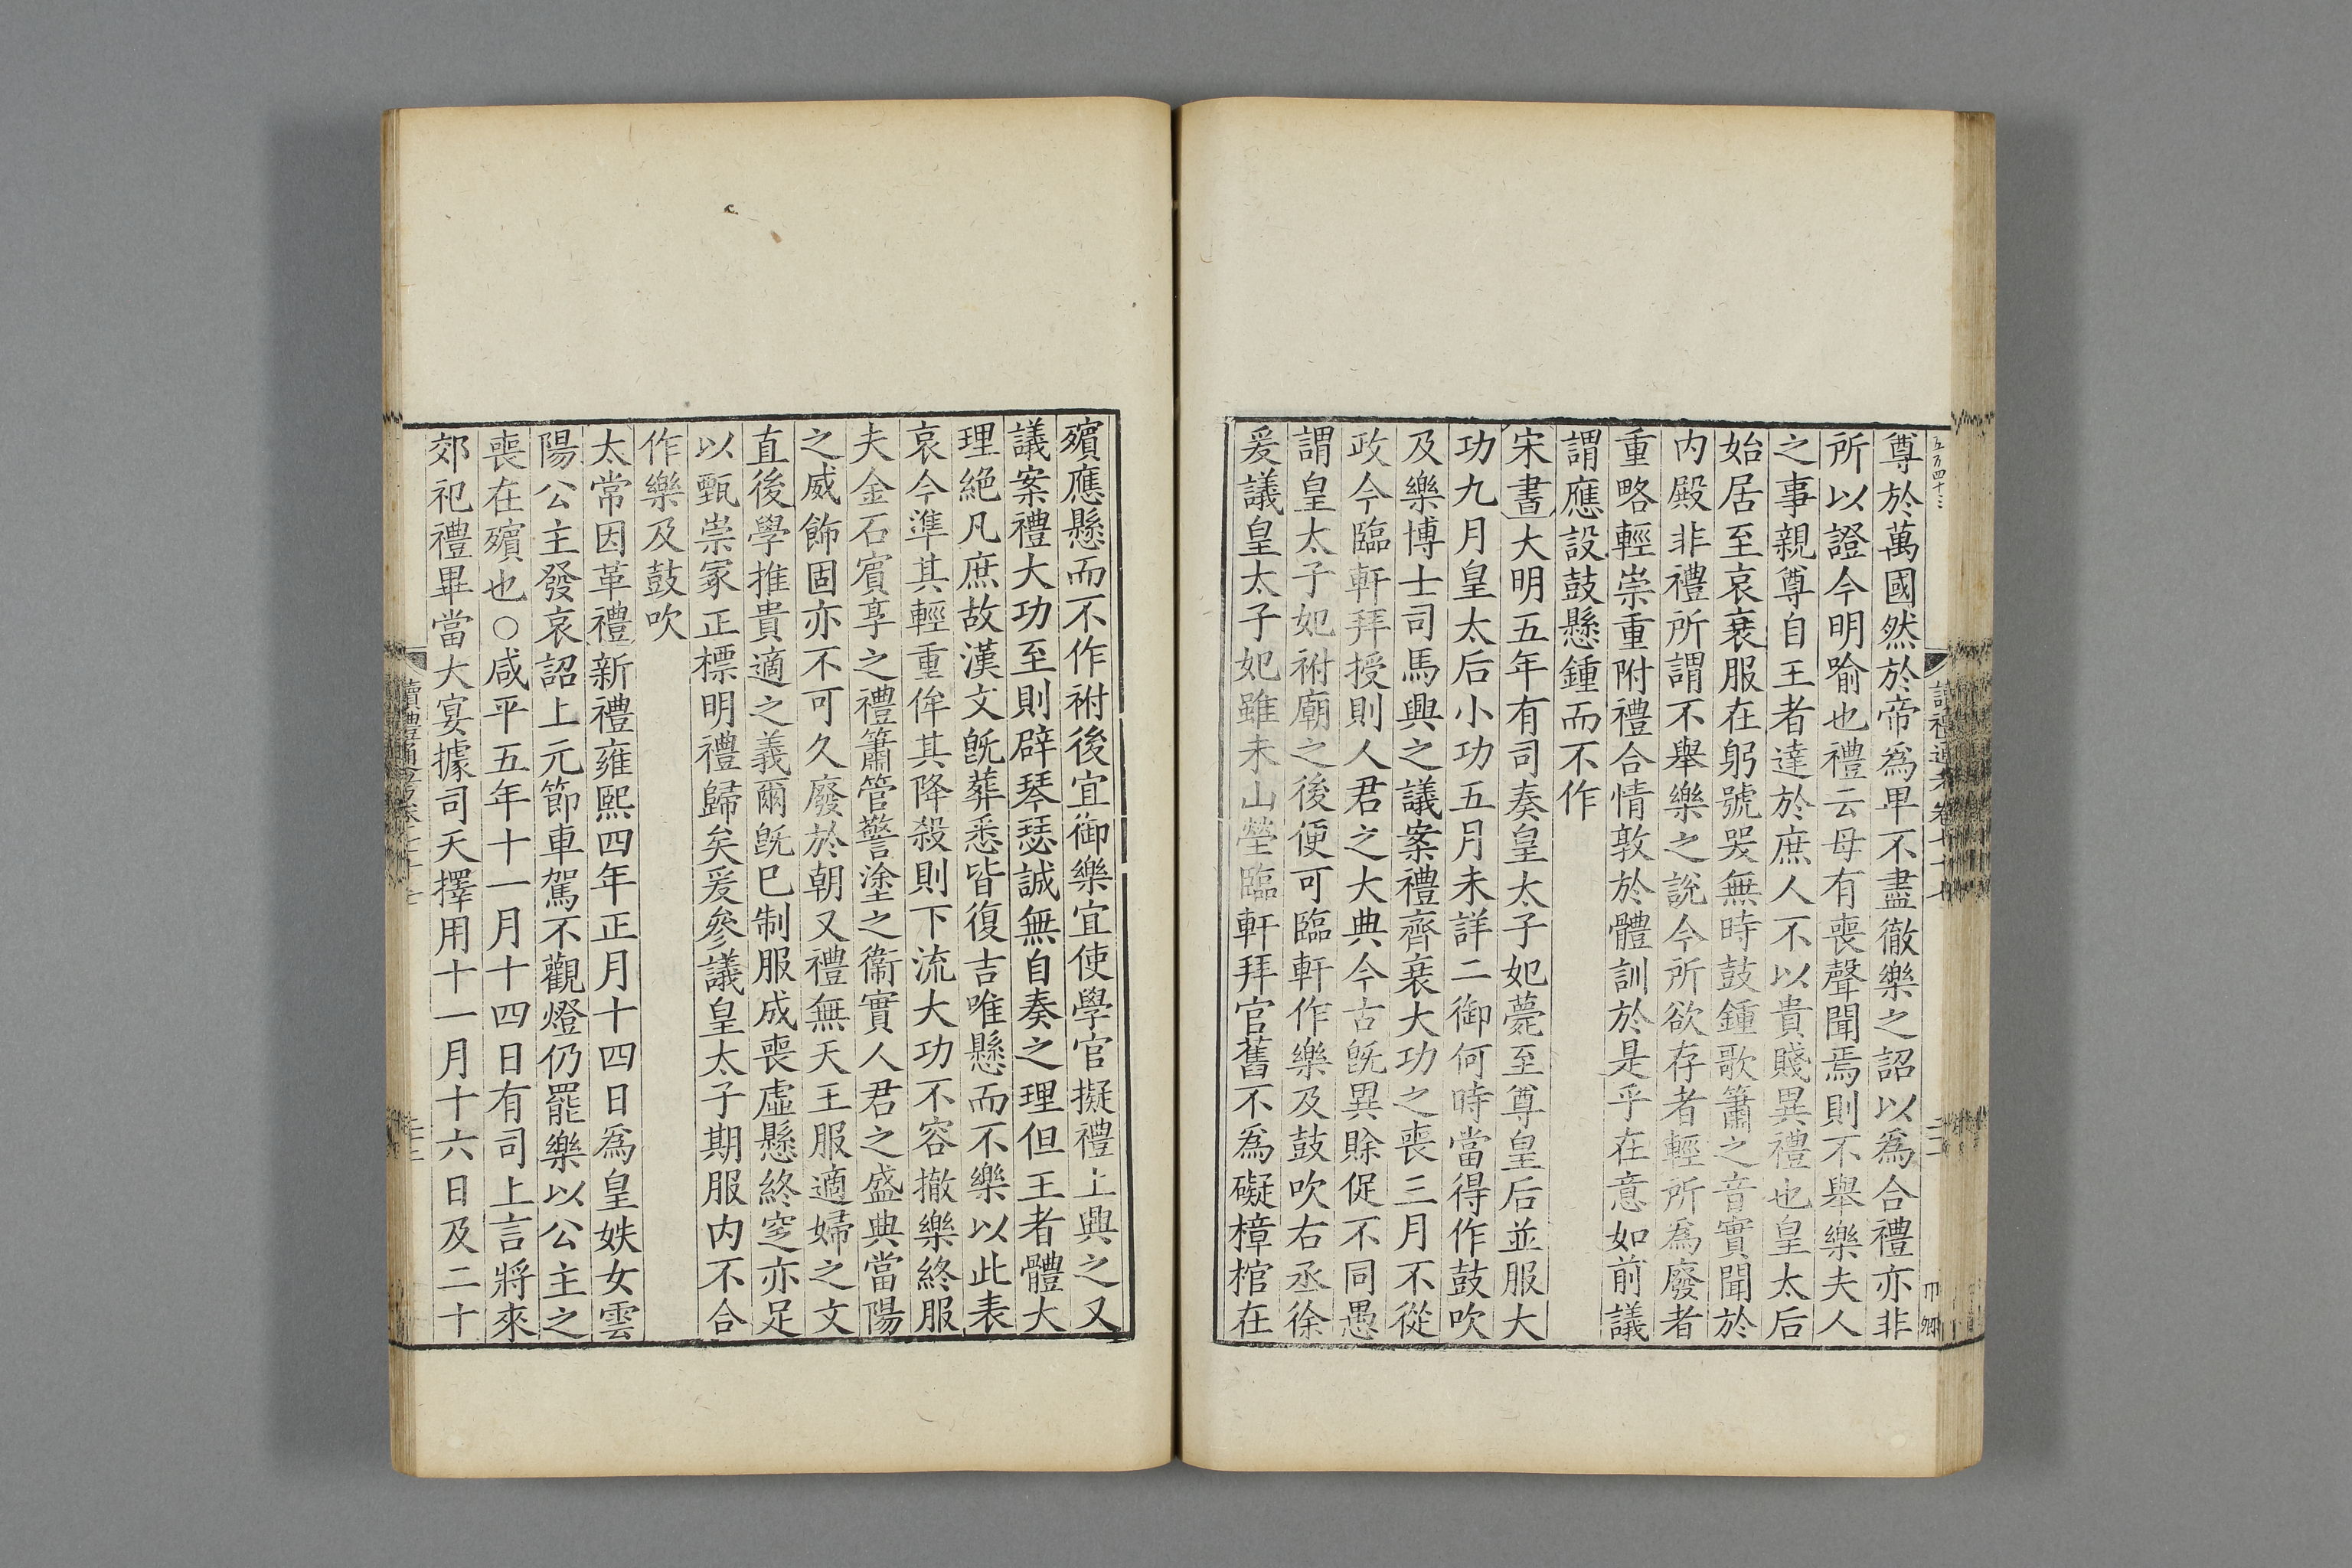 五万四十三
讀禮通考卷七十七
尊於萬國然於帝爲卑不盡徹樂之詔以爲合禮亦非
所以證今明喻也禮云母有喪聲聞焉則不舉樂夫人
之事親尊自王者達於庶人不以貴賤異禮也皇太后
始居至哀衰服在躬號哭無時鼓鍾歌簫之音實聞於
内殿非禮所謂不舉樂之說今所欲存者輕所爲廢者
重略輕崇重附禮合情敦於體訓於是乎在意如前議
謂應設鼓懸鍾而不作
宋書大明五年有司奏皇太子妃薨至尊皇后並服大
功九月皇太后小功五月未詳二御何時當得作鼓吹
及樂博士司馬興之議案禮齊衰大功之喪三月不從
政今臨軒拜授則人君之大典今古旣異賒促不同愚
謂皇太子妃祔廟之後便可臨軒作樂及鼓吹右丞徐
爰議皇太子妃雖未山塋臨軒拜官舊不爲礙樟棺在
殯應懸而不作祔後宜御樂宜使學官擬禮上興之又
議案禮大功至則辟琴瑟誠無自奏之理但王者體大
理絶凡庶故漢文旣葬悉皆復吉唯懸而不樂以此表
哀今準其輕重侔其降殺則下流大功不容撤樂終服
夫金石賓享之禮簫管警塗之衞實人君之盛典當陽
之威飾固亦不可久廢於朝又禮無天王服適婦之文
直後學推貴適之義爾旣已制服成喪虛懸終窆亦足
以甄崇冢正標明禮歸矣爰參議皇太子期服内不合
作樂及鼓吹
太常因革禮新禮雍熙四年正月十四日爲皇妷女雲
陽公主發哀詔上元節車駕不觀燈仍罷樂以公主之
喪在殯也○咸平五年十一月十四日有司上言將來
郊祀禮畢當大宴據司天擇用十一月十六日及二十
讀禮通考卷七十七